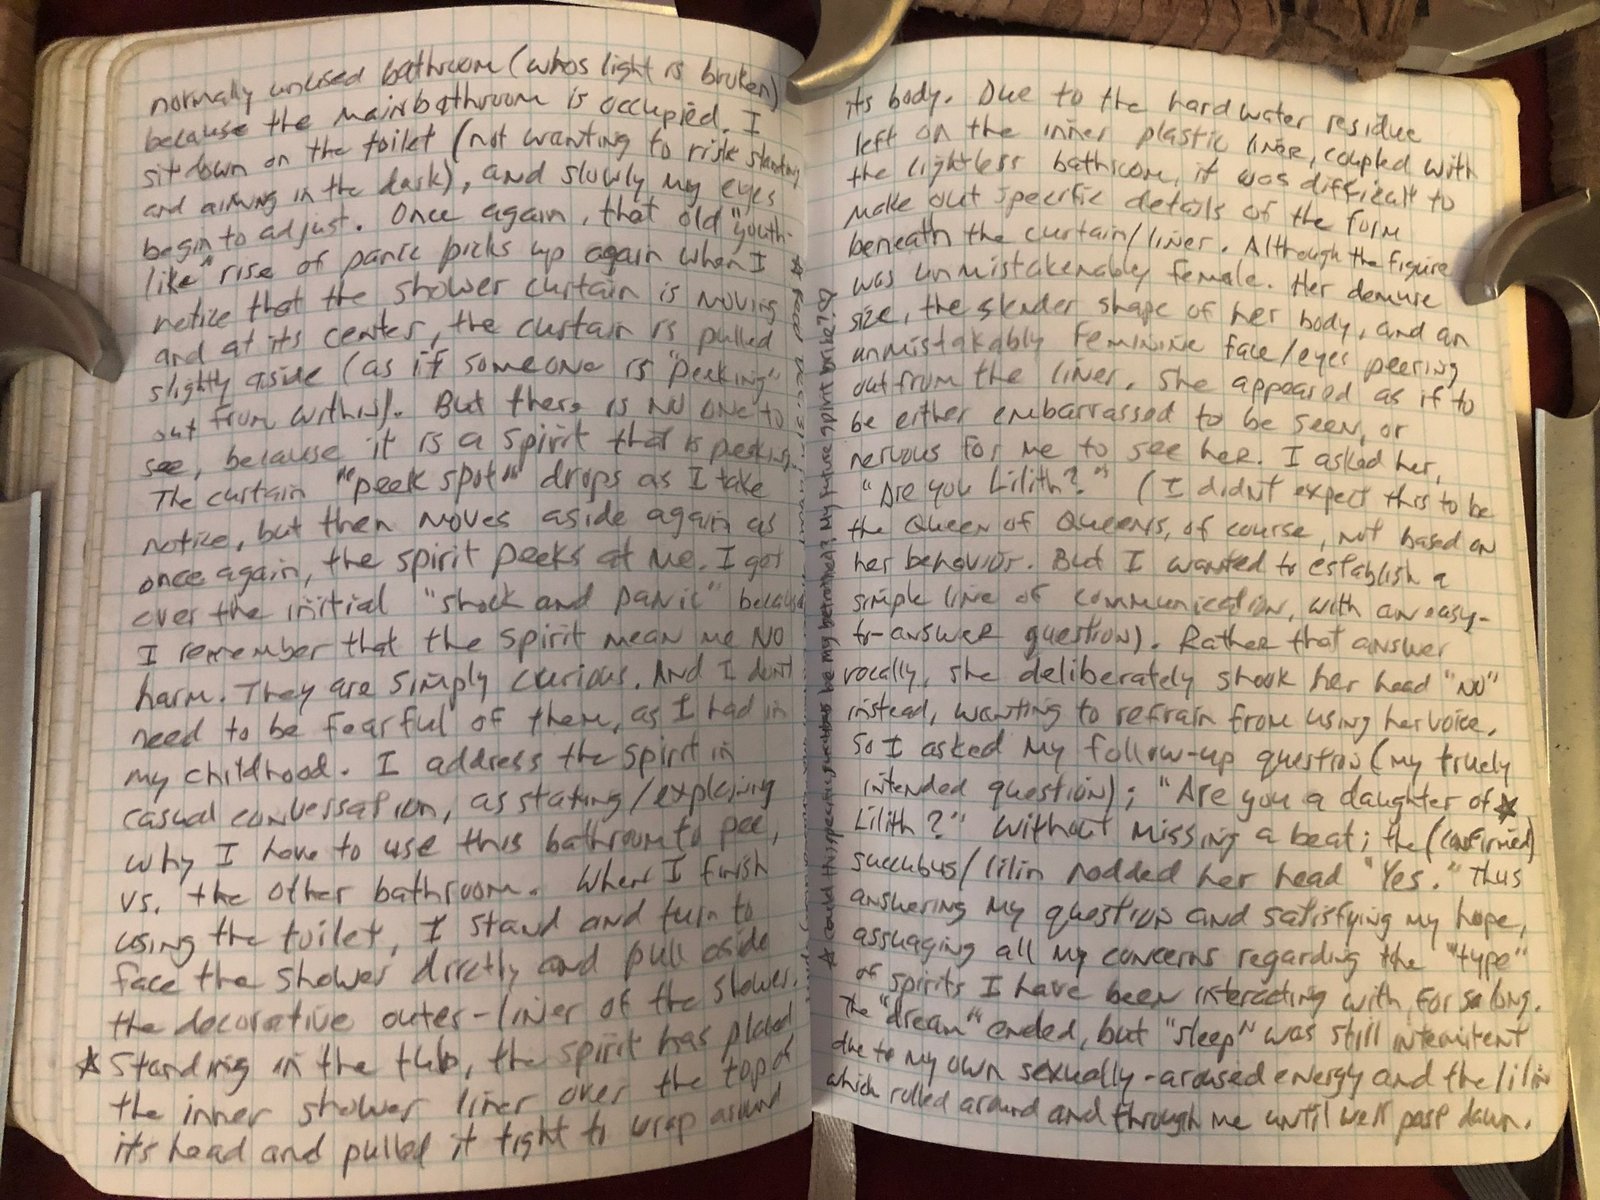 normally unused bathroom (whos light is broken)
because the main bathroom is occupied. I
sit down on the toilet (not wanting to risk standing
and aiming in the dark), and slowly my eyes
begin to adjust. Once again, that old "youth-
like" rise of panic picks up again when I
notice that the shower curtain is moving
and at its center, the curtain is pulled
slightly aside (as if someone is "peeking"
out from within). But there is no one to
see, because it is a spirit that is peeking.
The curtain "peek spot" drops as I take
notice, but then moves aside again as
once again, the spirit peeks at me. I got
over the initial "shock and panic" because
I remember that the spirit mean me no
harm. They are simply curious. And I don't
need to be fearful of them, as I had in
my childhood. I address the spirit in
casual conversation, as stating/explaining
why I have to use this bathroom to pee,
vs. the other bathroom. When I finish
using the toilet, I stand and turn to
face the shower directly and pull aside
the decorative outer-liner of the shower.
☆ Standing in the tub, the spirit has placed
the inner shower liner over the top of
it's head and pulled it tight to wrap around
☆ could this specific succubus be my betrothed? My future spirit bride?
its body. Due to the hard water residue
left on the inner plastic liner, coupled with
the lightless bathroom, it was difficult to
make out specific details of the form
beneath the curtain/liner. Although the figure
was unmistakenably female. Her demure
size, the slender shape of her body, and an
unmistakably feminine face/eyes peering
out from the liner. She appeared as if to
be either embarrassed to be seen, or
nervous for me to see her. I asked her,
"Are you Lilith?" (I didn't expect this to be
the Queen of Queens, of course, not based on
her behavior. But I wanted to establish a
simple line of communication, with an easy-
to-answer question). Rather that answer
vocally, she deliberately shook her head "NO"
instead, wanting to refrain from using her voice.
So I asked my follow-up question (my truely
intended question); "Are you a daughter of ☆
Lilith?" Without missing a beat; the (confirmed)
succubus/lilin nodded her head "Yes." Thus
answering my question and satisfying my hope,
assuaging all my concerns regarding the "type"
of spirits I have been interacting with for so long.
The "dream" ended, but "sleep" was still intermitent
due to my own sexually-aroused energy and the lilin
which rolled around and through me until well past dawn.